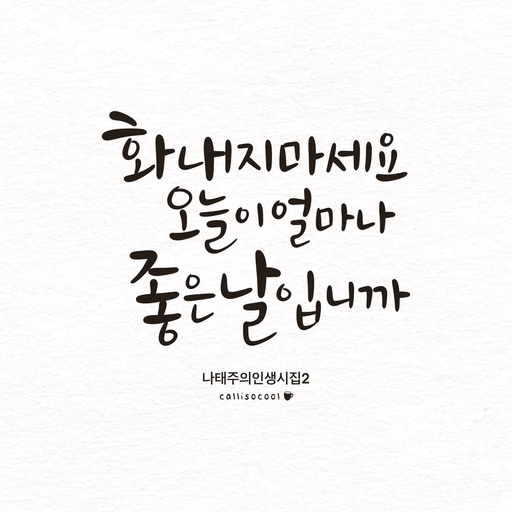 화내지마세요
오늘이얼마나
좋은날입니까
나태주의인생시집2
callisocool